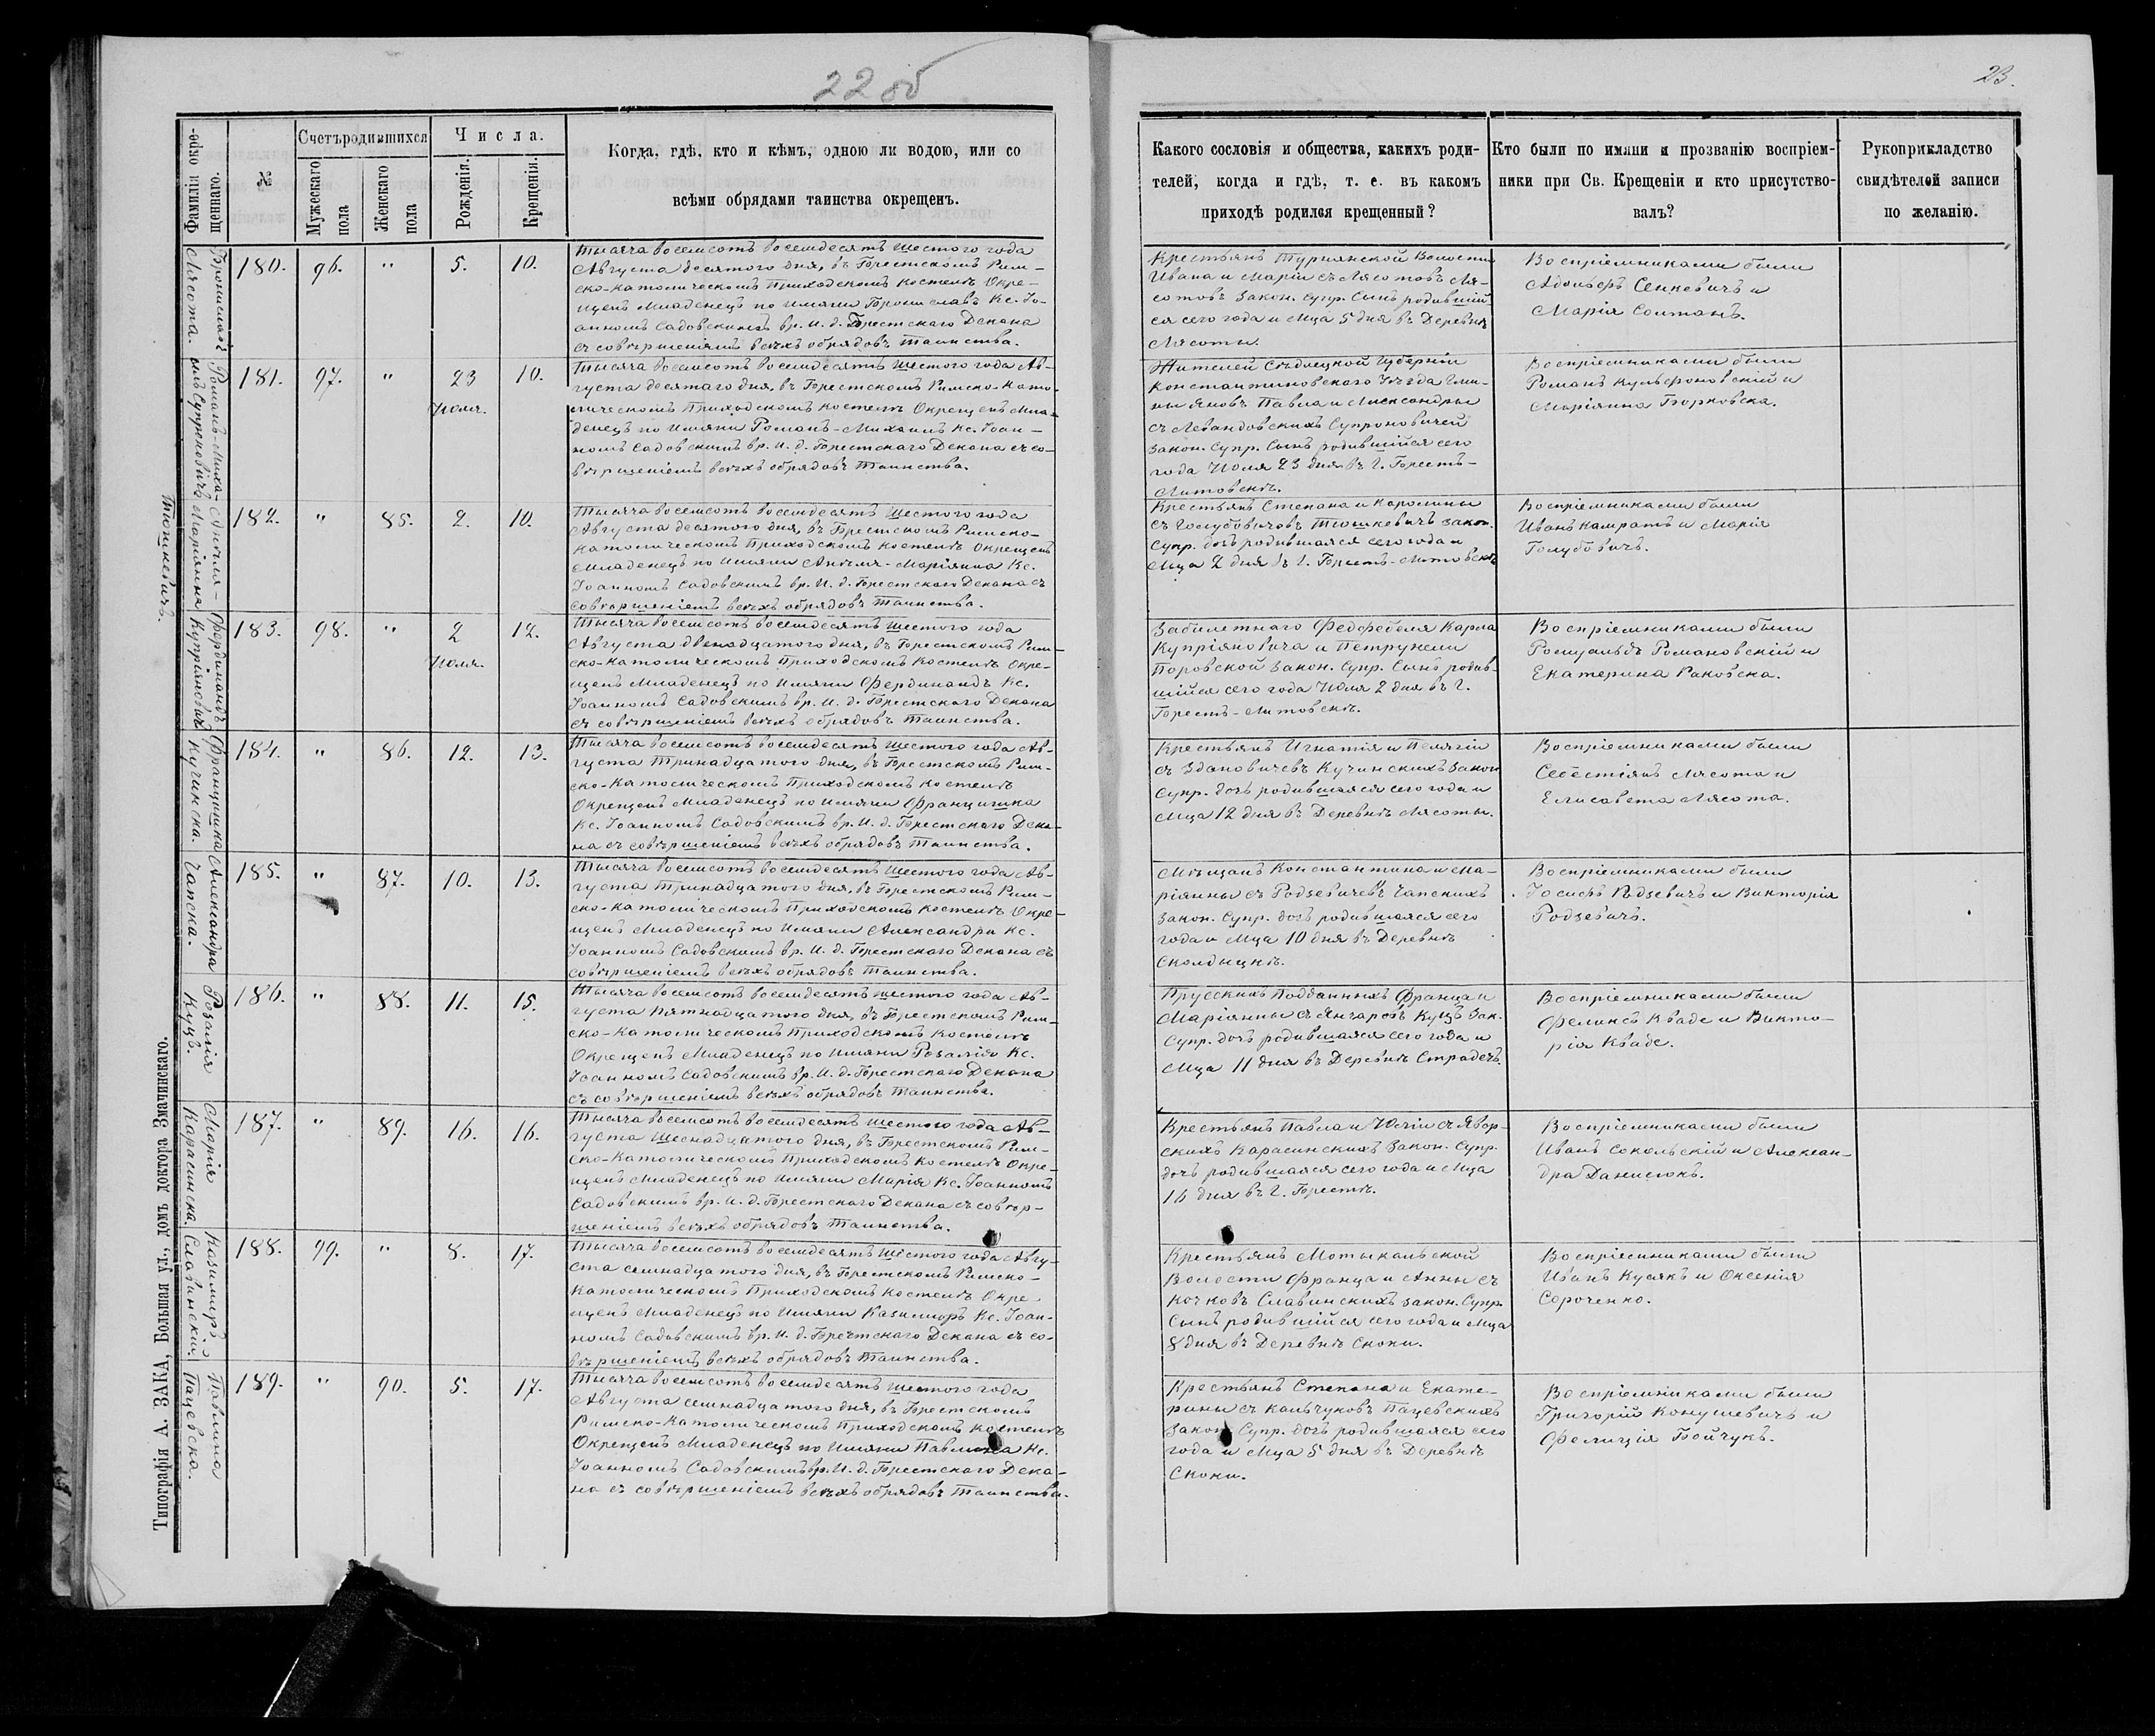 22 об
23.
Фамилія окре-
щаннаго.
№
Счетъ родившихся
Мужескаго
пола
Женскаго
пола
Числа.
Рожденія.
Крещенія.
Когда, гдѣ, кто и кѣмъ, одною ли водою, или со
всѣми обрядами таинства окрещенъ.
Какого сословія и общества, какихъ роди-
телей, когда и гдѣ, т. е. въ какомъ
приходѣ родился крещенный?
Кто были по имяни и прозванію воспріем-
ники при Св. Крещеніи и кто присутство-
валъ?
Рукоприкладство
свидѣтелей записи
по желанію.
Брониславъ
Лясота.
180. 96. " 5. 10.
Тысяча восемсотъ восемдесятъ шестого года
Августа десятого дня, въ Брестскомъ Рим-
ско-католическомъ Приходскомъ костелѣ Окре-
щенъ Младенецъ по имяни Брониславъ Кс. Іо-
анномъ Садовскимъ вр. И. д. Брестскаго Декана
съ совѣршеніемъ всѣхъ обрядовъ Таинства.
Крестьянъ Турнянской Волости
Ивана и Маріи съ Лясотовъ Ля-
сотовъ Закон. Супр. Сынъ родившій
ся сего года и Мца 5 дня въ Деревнѣ
Лясоты.
Воспріемниками были
Адольфъ Сенкевичъ и
Марія Солтанъ.
Романъ-Миха-
илъ Супроновичъ
181. 97. " 23 Іюля. 10.
Тысяча восемсотъ восемдесятъ шестого года Ав-
густа десятаго дня, въ Брестскомъ Римско-Като-
лическомъ Приходскомъ костелѣ Окрещенъ Мла-
денецъ по имяни Романъ-Михаилъ Кс. Іоан-
номъ Садовскимъ вр. И. д. Брестскаго Декана съ со-
вѣршеніемъ всѣхъ обрядовъ Таинства.
Жителей Сѣдлецкой Губерніи
Константиновского Уѣзда Гми-
ны Яновъ Павла и Александры
съ Левандовскихъ Супроновичей
Закон. Супр. Сынъ родившійся сего
года Іюля 23 дня въ г. Брестъ-
Литовскѣ.
Воспріемниками были
Романъ Кульфоновскій и
Маріянна Борковска.
Анеля-
Маріянна
Тюшкевичъ.
182. " 85. 2. 10.
Тысяча восемсотъ восемдесятъ шестого года
Августа десятого дня, въ Брестскомъ Римско-
католическомъ Приходскомъ костелѣ Окрещенъ
Младенецъ по имяни Анеля-Маріянна Кс.
Іоанномъ Садовскимъ вр. И. д. Брестскаго Декана съ
совѣршеніемъ всѣхъ обрядовъ Таинства.
Крестьянъ Степана и Каролины
съ Голубовичовъ Тюшкевичъ закон.
Супр. дочъ родившаяся сего года и
Мца 2 дня въ г. Брестъ-Литовскѣ
Воспріемниками были
Иванъ Камратъ и Марія
Голубовичъ.
Фердинандъ
Купріяновичъ
183. 98. " 2 Іюля. 12.
Тысяча восемсотъ восемдесятъ шестого года
Августа двенадцатого дня, въ Брестскомъ Рим-
ско-Католическомъ Приходскомъ Костелѣ Окре-
щенъ Младенецъ по имяни Фердинандъ Кс.
Іоанномъ Садовскимъ вр. И. д. Брестскаго Декана
съ совѣршеніемъ всѣхъ обрядовъ Таинства.
Забилетнаго Фелфебеля Карла
Купріяновича и Петрунели
Поровской Закон. Супр. Сынъ родив-
шійся сего года Іюля 2 дня въ г.
Брестъ-Литовскѣ.
Воспріемниками были
Ромуальдъ Романовскій и
Екатерина Раковска.
Францишка
Кучинска.
184. " 86. 12. 13.
Тысяча восемсотъ восемдесятъ шестого года Ав-
густа Тринадцатого дня, въ Брестскомъ Рим-
ско-Католическомъ Приходскомъ Костелѣ
Окрещенъ Младенецъ по имяни Францишка
Кс. Іоанномъ Садовскимъ вр. И. д. Брестскаго Дека-
на съ совѣршеніемъ всѣхъ обрядовъ Таинства.
Крестьянъ Игнатія и Пелагіи
съ Здановичевъ Кучинскихъ закон
Супр. дочъ родившаяся сего года и
Мца 12 дня въ Деревнѣ Лясоты.
Воспріемниками были
Себестіянъ Лясота и
Елисавета Лясота.
Александра
Чапска.
185. " 87. 10. 13.
Тысяча восемсотъ восемдесятъ шестого года Ав-
густа Тринадцатого дня, въ Брестскомъ Рим-
ско-католическомъ Приходскомъ костелѣ Окре-
щенъ Младенецъ по имяни Александра Кс.
Іоанномъ Садовскимъ вр. И. д. Брестскаго Декана съ
совѣршеніемъ всѣхъ обрядовъ Таинства.
Мѣщанъ Константина и Ма-
ріянны съ Родзевичевъ Чапскихъ
Закон. Супр. дочъ родившаяся сего
года и Мца 10 дня въ Деревнѣ
Сколдыцкѣ.
Воспріемниками были
Іосифъ Родзевичъ и Викторія
Родзевичъ.
Розалія
Куцъ.
186. " 88. 11. 15.
Тысяча восемсотъ восемдесятъ шестого года Ав-
густа Пятнадцатого дня, въ Брестскомъ Рим-
ско-Католическомъ Приходскомъ Костелѣ
Окрещенъ Младенецъ по имяни Розалія Кс.
Іоанномъ Садовскимъ вр. И. д. Брестскаго Декана
съ совѣршеніемъ всѣхъ обрядовъ Таинства.
Прусскихъ Подданныхъ Франца и
Маріянны съ Янчаровъ Куцъ Зак.
Супр. дочъ родившаяся сего года и
Мца 11 дня въ Деревнѣ Страдечь.
Воспріемниками были
Феликсъ Кваде и Викто-
рія Кваде.
Марія
Карасинска.
187. " 89. 16. 16.
Тысяча восемсотъ восемдесятъ шестого года Ав-
густа Шеснадцатого дня, въ Брестскомъ Рим-
ско-Католическомъ Приходскомъ Костелѣ Окре-
щенъ Младенецъ по имяни Марія Кс. Іоанномъ
Садовскимъ вр. И. д. Брестскаго Декана съ совѣр-
шеніемъ всѣхъ обрядовъ Таинства.
Крестьянъ Павла и Юліи съ Явор-
скихъ Карасинскихъ Закон. Супр.
дочъ родившаяся сего года и Мца
16 дня въ г. Брестѣ.
Воспріемниками были
Иванъ Сокольскій и Алексан-
дра Данилюкъ.
Казимиръ
Славинскій.
188. 99. " 8. 17.
Тысяча восемсотъ восемдесятъ шестого года Авгу-
ста семнадцатого дня, въ Брестскомъ Римско-
Католическомъ Приходскомъ Костелѣ Окре-
щенъ Младенецъ по имяни Казимиръ Кс. Іоан-
номъ Садовскимъ вр. И. д. Брестскаго Декана съ со-
вѣршеніемъ всѣхъ обрядовъ Таинства.
Крестьянъ Мотыкальской
Волости Франца и Анны съ
Кочковъ Славинскихъ закон. Супр.
Сынъ родившійся сего года и Мца
8 дня въ Деревнѣ Скоки.
Воспріемниками были
Иванъ Кулякъ и Оксенія
Сороченко.
Павлина
Пацевска.
189. " 90. 5. 17.
Тысяча восемсотъ восемдесятъ шестого года
Августа семнадцатого дня, въ Брестскомъ
Римско-Католическомъ Приходскомъ Костелѣ
Окрещенъ Младенецъ по имяни Павлина Кс.
Іоанномъ Садовскимъ вр. И. д. Брестскаго Дека-
на съ совѣршеніемъ всѣхъ обрядовъ Таинства.
Крестьянъ Степана и Екате-
рины съ Кальчуковъ Пацевскихъ
Закон. Супр. дочъ родившаяся сего
года и Мца 5 дня въ Деревнѣ
Скоки.
Воспріемниками были
Григорій Конушевичъ и
Фелиція Бойчукъ.
Типографія А. ЗАКА, Большая ул., домъ доктора Змачинскаго.